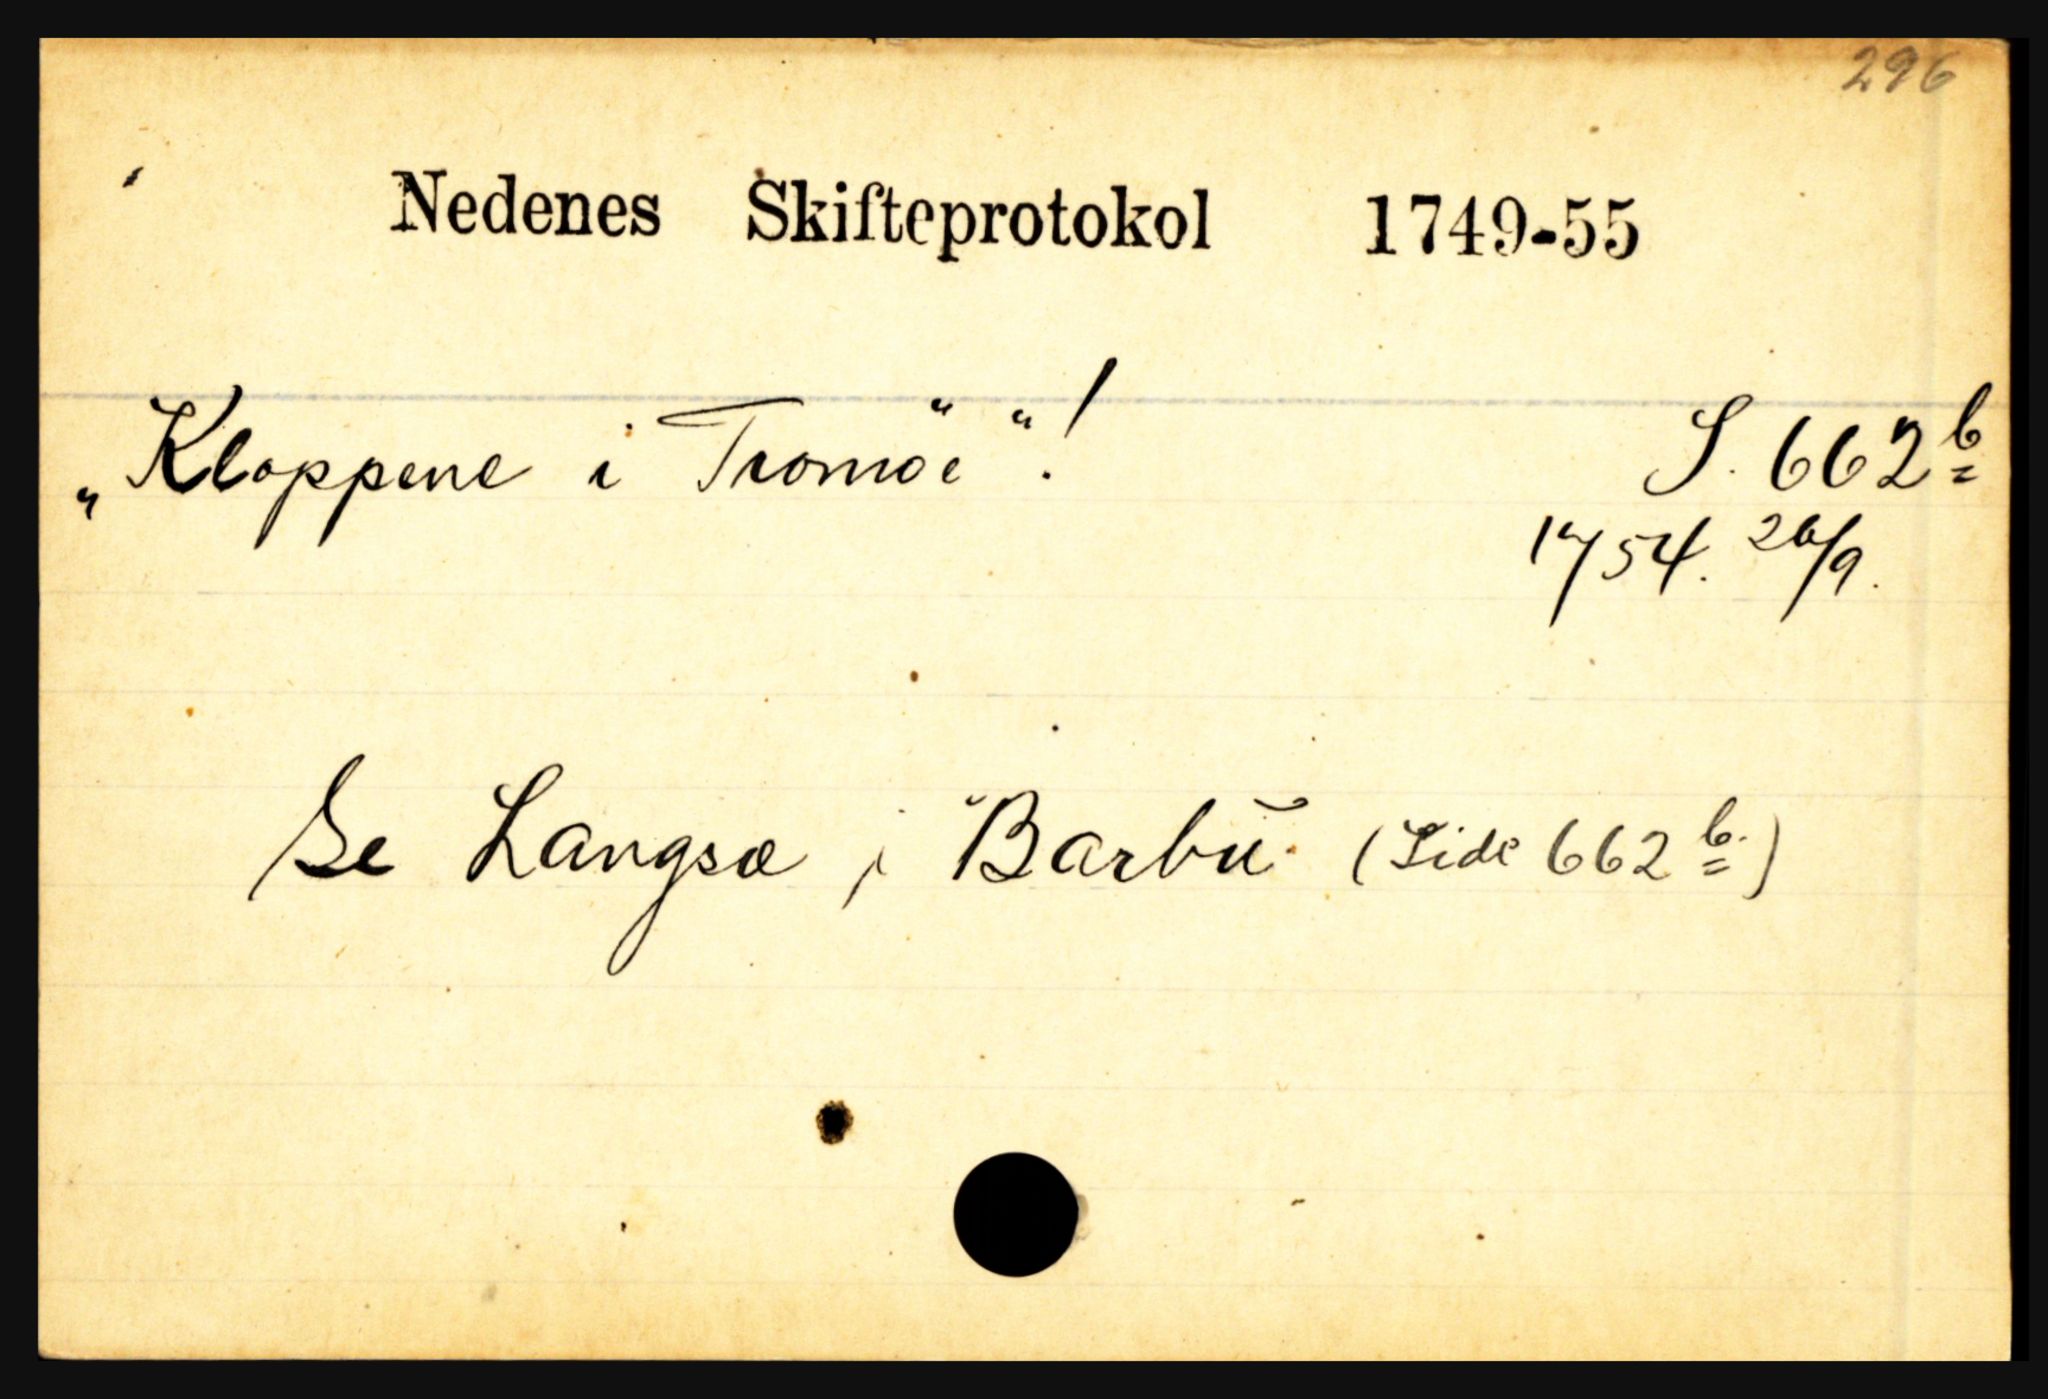 296
Nedenes Skifteprotokol 1749-55
„Kloppene i Tromöe“! S. 662 b
1754. 26/9.
Se Langsæ i Barbu. (Side 662 b.)